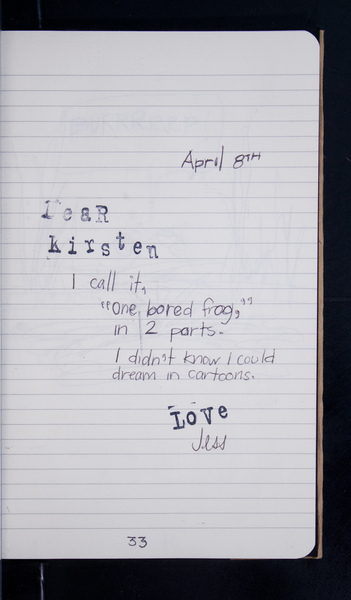 April 8TH
DeaR
kirsten
I call it,
"One bored frog,"
in 2 parts.
I didn't know I could
dream in cartoons.
LOVe
Jess
33